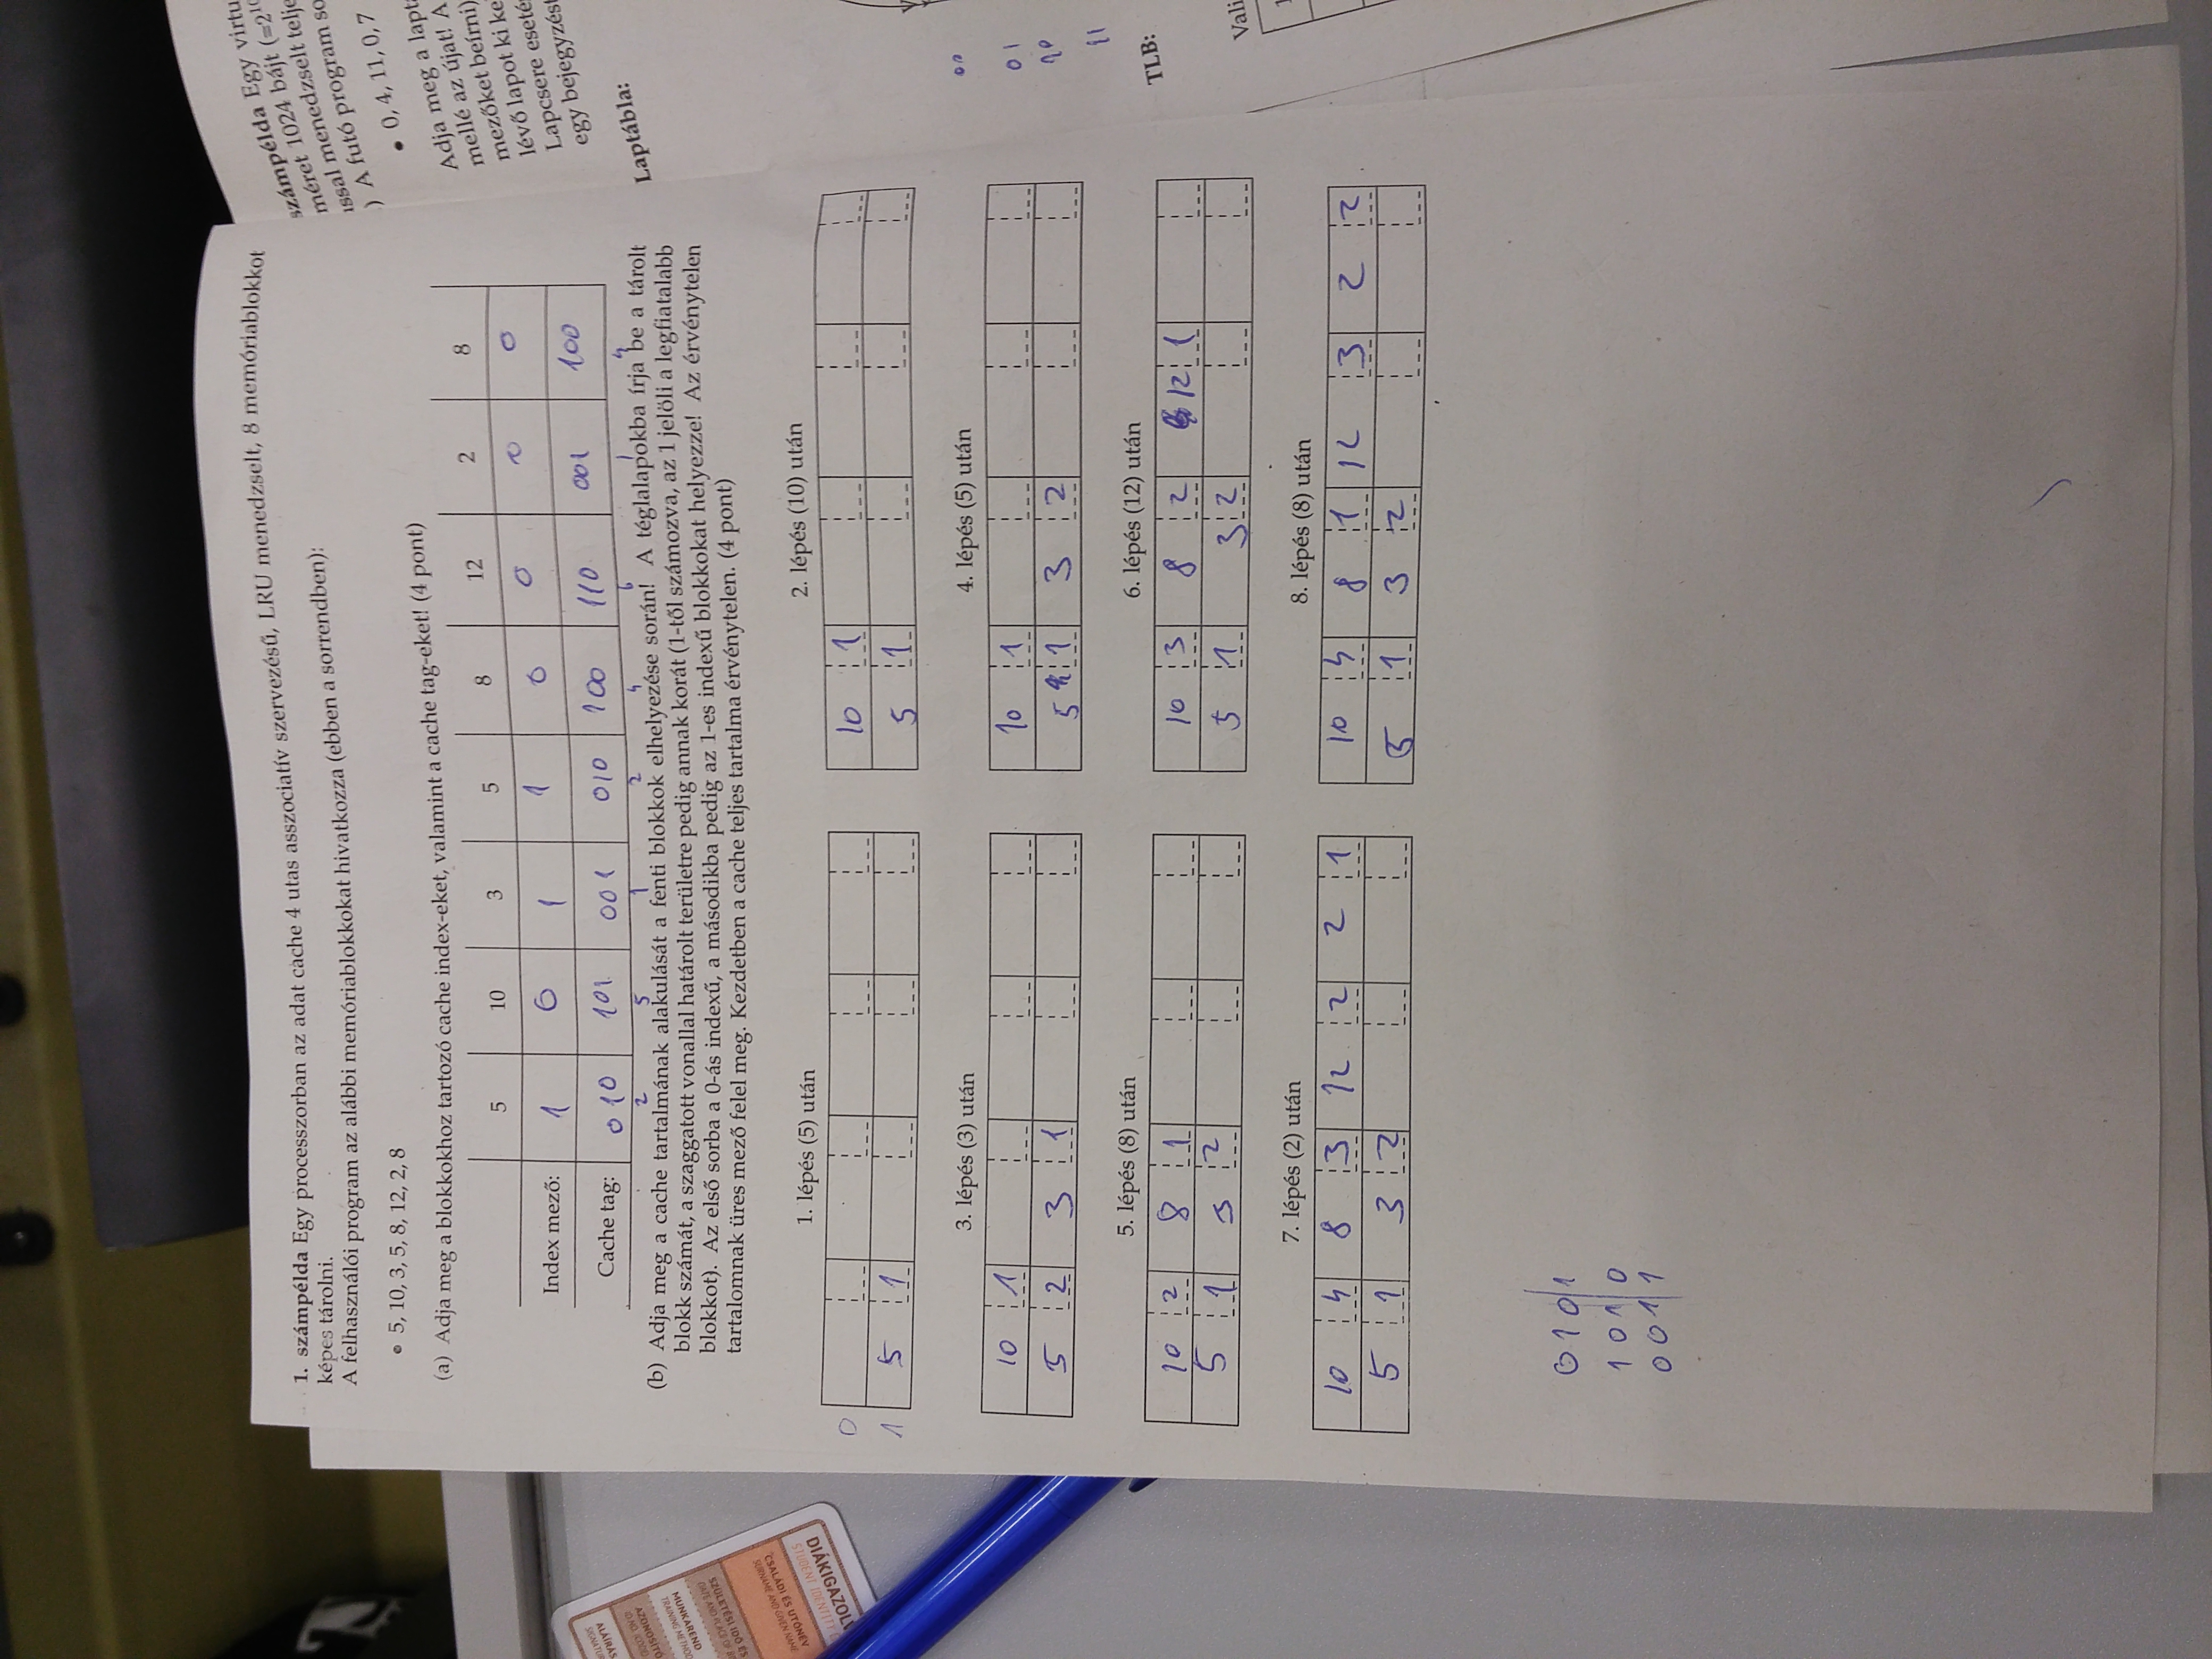 1. számpélda Egy processzorban az adat cache 4 utas asszociatív szervezésű, LRU menedzselt, 8 memóriablokkot
képes tárolni.
A felhasználói program az alábbi memóriablokkokat hivatkozza (ebben a sorrendben):
• 5, 10, 3, 5, 8, 12, 2, 8
(a) Adja meg a blokkokhoz tartozó cache index-eket, valamint a cache tag-eket! (4 pont)
5 10 3 5 8 12 2 8
Index mező: 1 0 1 1 0 0 0 0
Cache tag: 010 101 001 010 100 110 001 100
2 5 1 2 4 6 1 4
(b) Adja meg a cache tartalmának alakulását a fenti blokkok elhelyezése során! A téglalapokba írja be a tárolt
blokk számát, a szaggatott vonallal határolt területre pedig annak korát (1-től számozva, az 1 jelöli a legfiatalabb
blokkot). Az első sorba a 0-ás indexű, a másodikba pedig az 1-es indexű blokkokat helyezze! Az érvénytelen
tartalomnak üres mező felel meg. Kezdetben a cache teljes tartalma érvénytelen. (4 pont)
1. lépés (5) után
0
1 5 1
2. lépés (10) után
10 1
5 1
3. lépés (3) után
10 1
5 2 3 1
4. lépés (5) után
10 1
5 1 3 2
5. lépés (8) után
10 2 8 1
5 1 3 2
6. lépés (12) után
10 3 8 2 12 1
5 1 3 2
7. lépés (2) után
10 4 8 3 12 2 2 1
5 1 3 2
8. lépés (8) után
10 4 8 1 12 3 2 2
5 1 3 2
0101
1010
0011
számpélda Egy virtu
méret 1024 bájt (=2
ással menedzselt telje
) A futó program so
• 0, 4, 11, 0, 7
Adja meg a lapt
mellé az újat! A
mezőket beírni)
lévő lapot ki ke
Lapcsere eseté
egy bejegyzést
Laptábla:
00
01
10
11
TLB:
Vali
1
DIÁKIGAZOL
STUDENT IDENTITY
CSALÁDI ÉS UTÓNÉV
SURNAME AND GIVEN NAME
SZÜLETÉSI IDŐ ÉS
DATE AND PLACE OF B
MUNKAREND
TRAINING METHOD
AZONOSÍTÓ
ID NO. (CODE)
ALÁÍRÁS
SIGNATUR